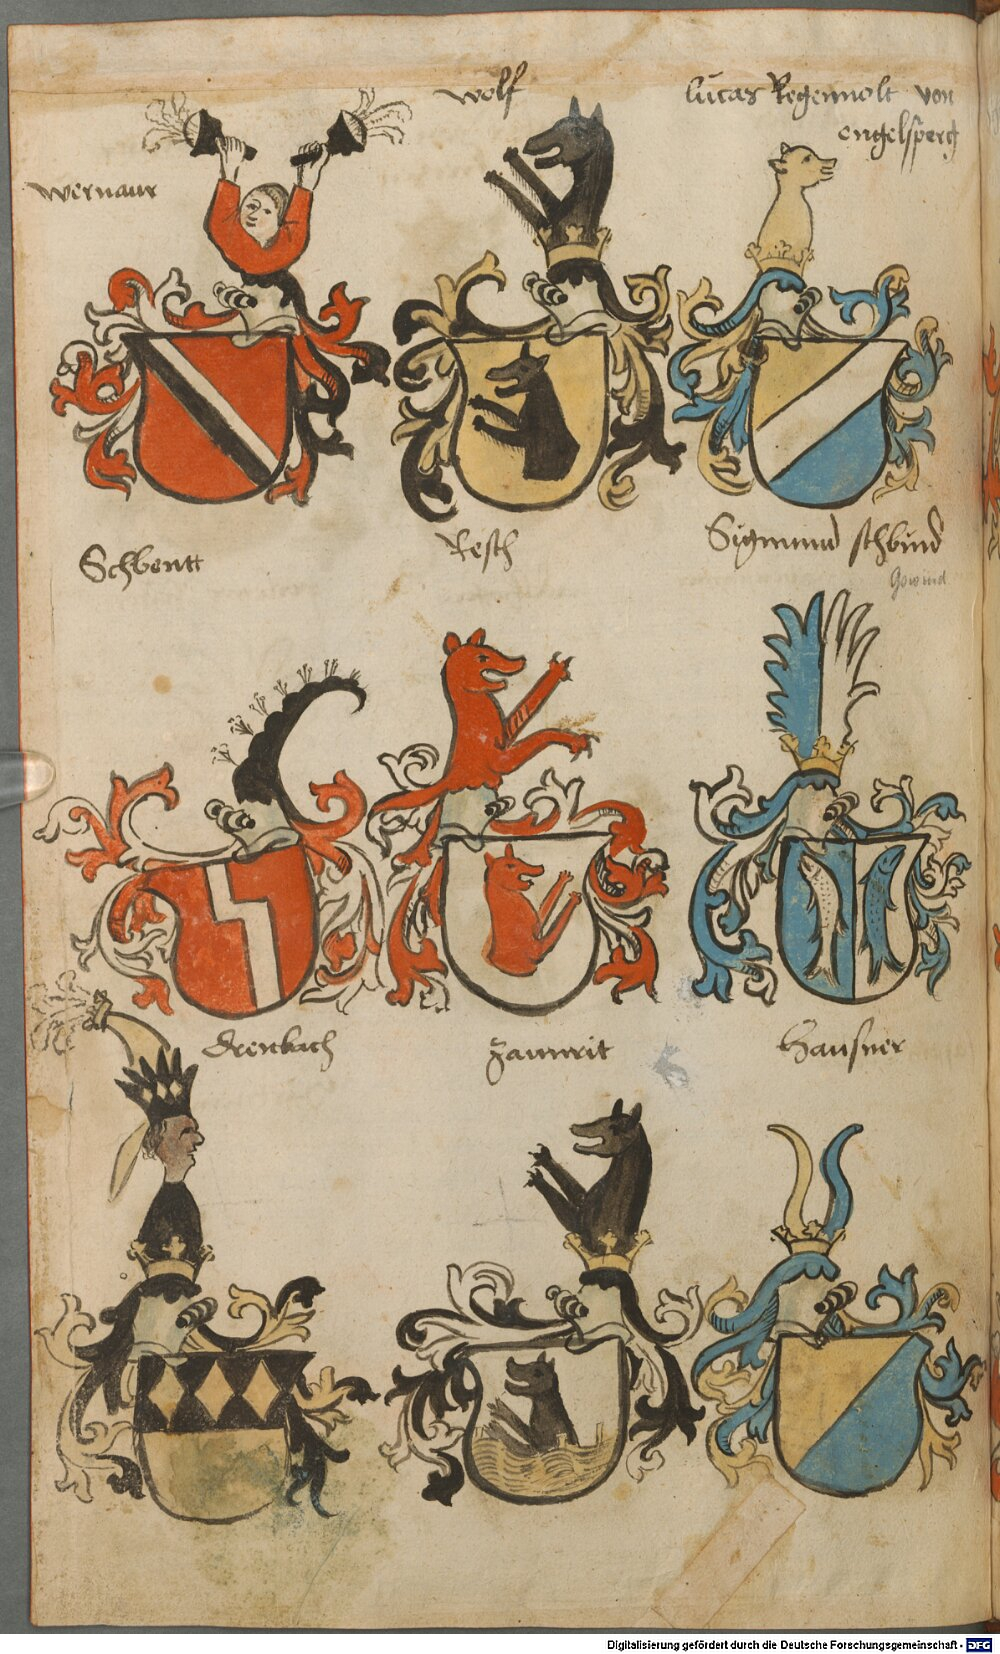 wolf
lucas Regennolt von
engelsperg
wernaur
Schbentt
Resch
Sigmund schbind
Gswind
Drenbach
Zaunrit
Hausner
Digitalisierung gefördert durch die Deutsche Forschungsgemeinschaft - DFG